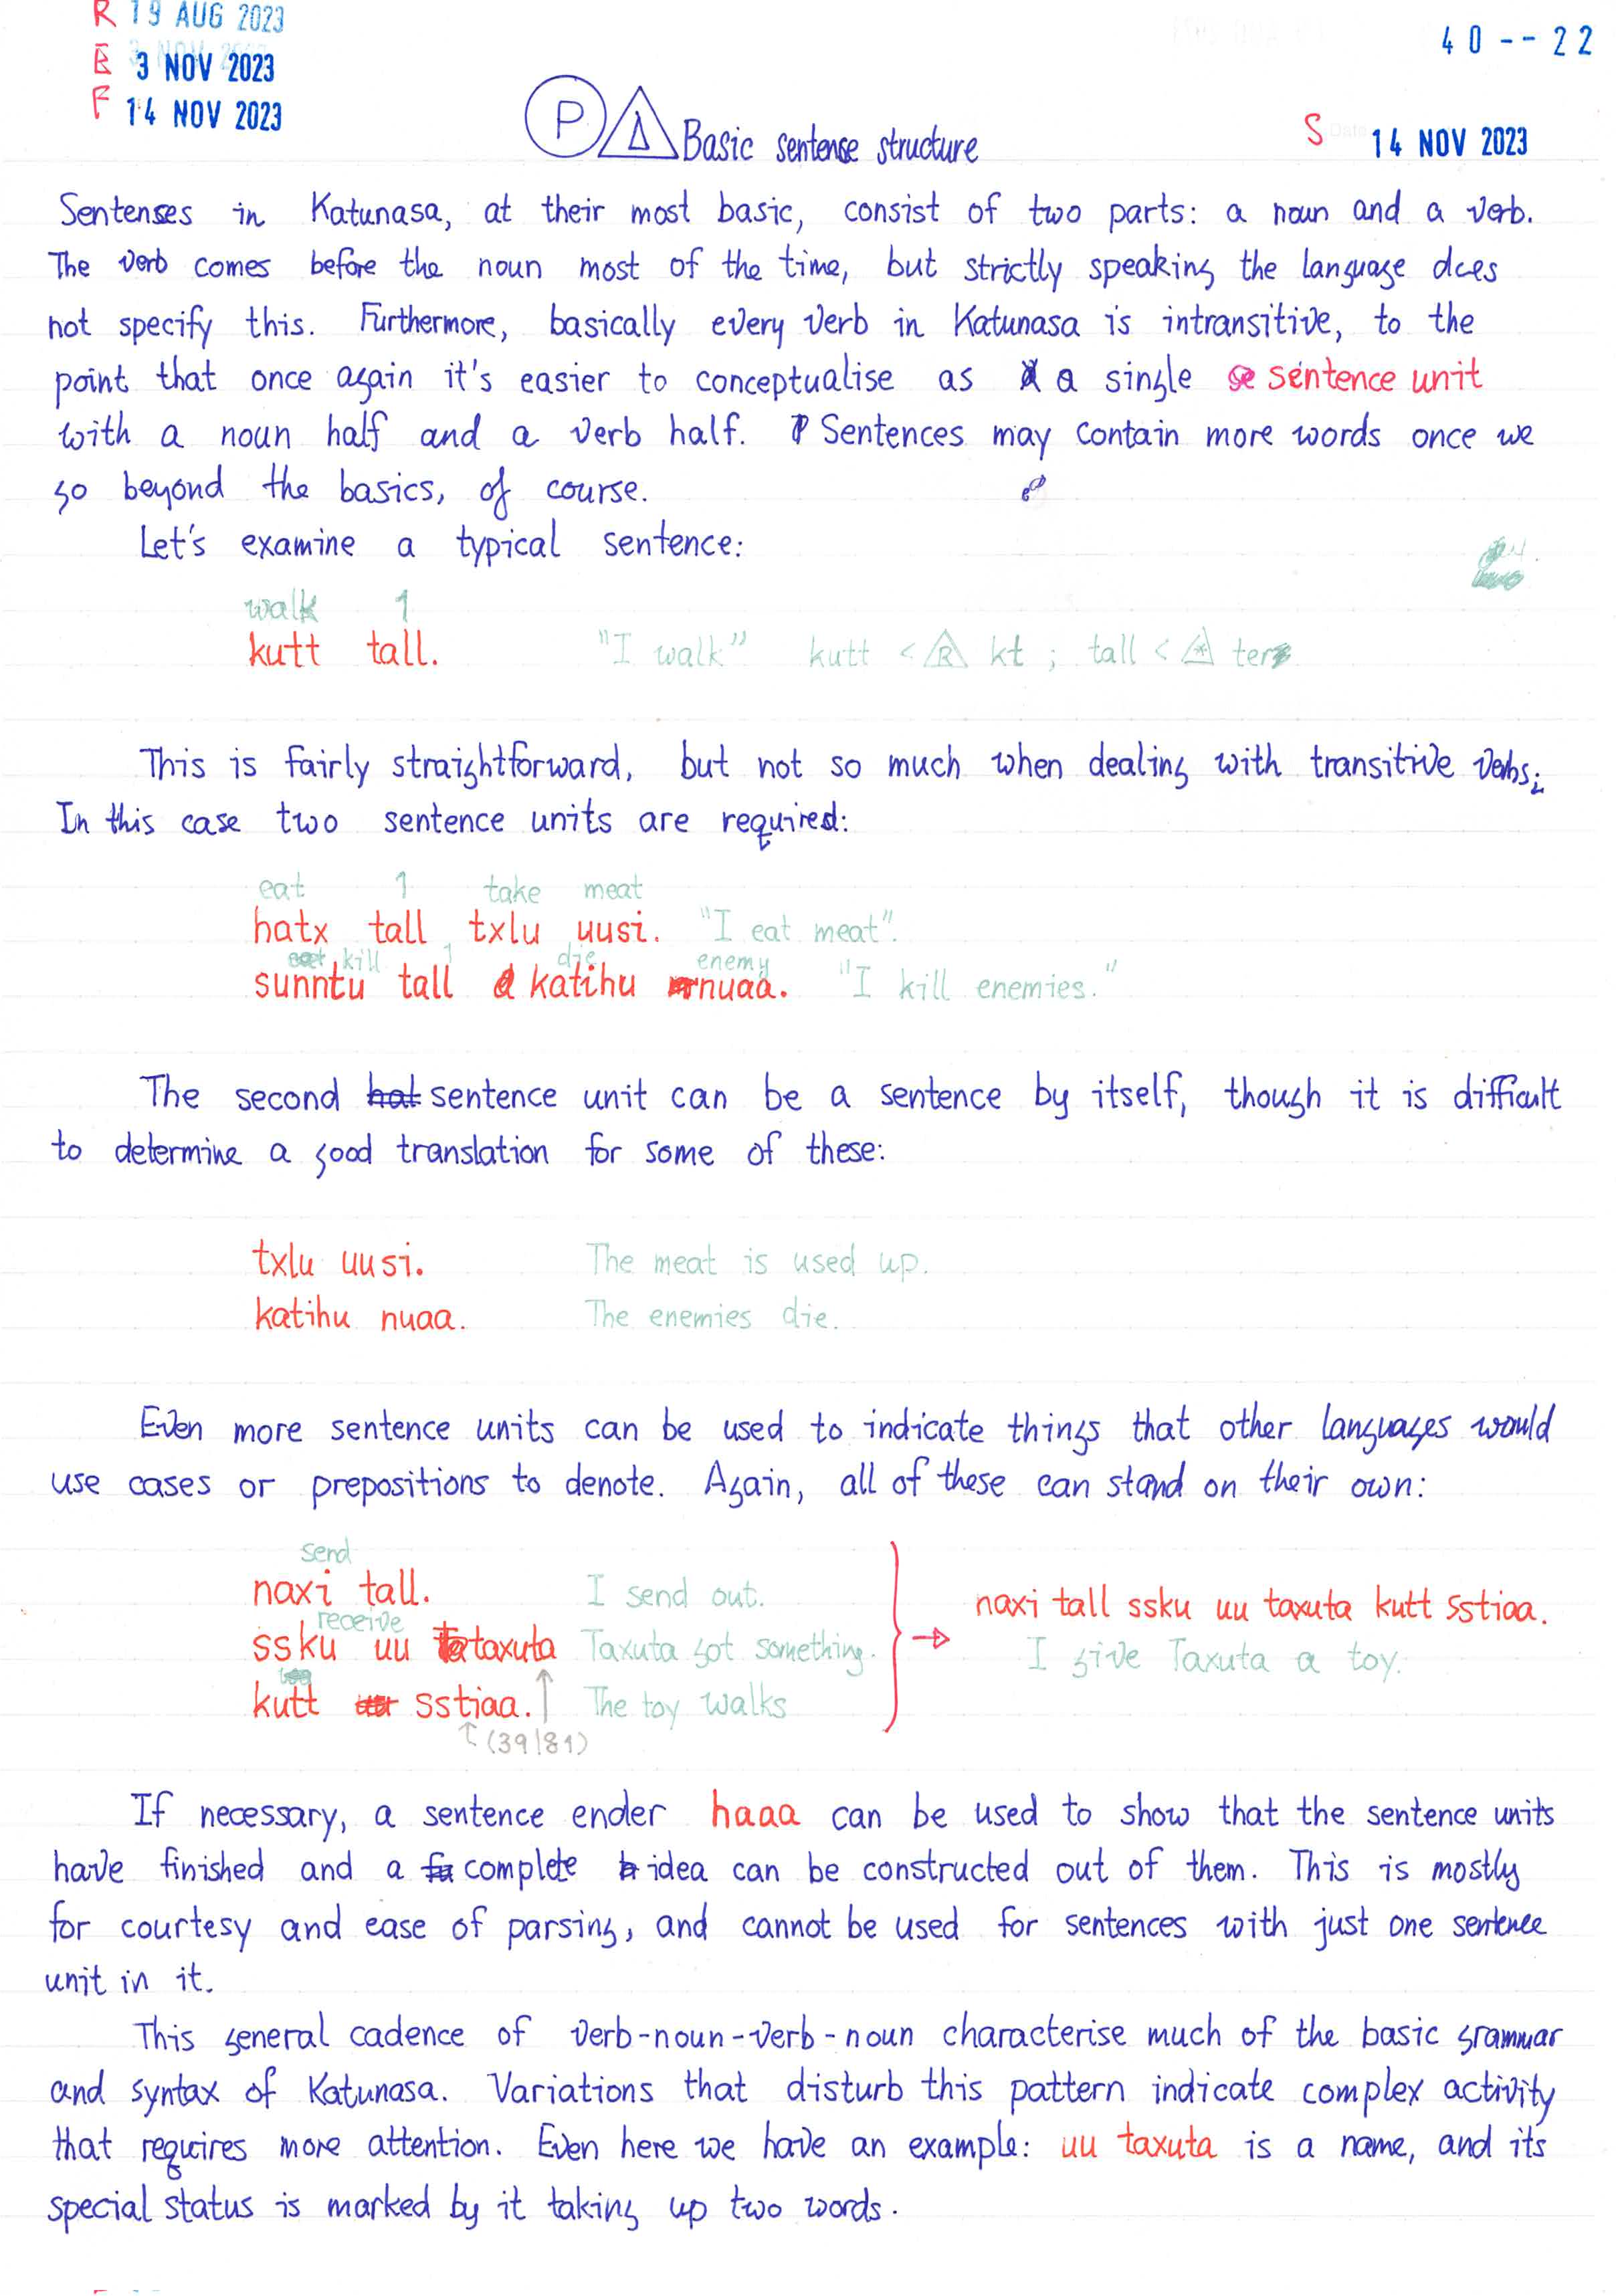 R 19 AUG 2023
E 3 NOV 2023
F 14 NOV 2023
40--22
P Δ Basic sentense structure
S 14 NOV 2023
Sentenses in Katunasa, at their most basic, consist of two parts: a noun and a verb.
The verb comes before the noun most of the time, but strictly speaking the language does
not specify this. Furthermore, basically every verb in Katunasa is intransitive, to the
point that once again it's easier to conceptualise as a single sentence unit
with a noun half and a verb half. Sentences may contain more words once we
go beyond the basics, of course.
Let's examine a typical sentence:
walk 1
kutt tall. "I walk" kutt < R kt ; tall < * ter
This is fairly straightforward, but not so much when dealing with transitive verbs;
In this case two sentence units are required:
eat 1 take meat
hatx tall txlu uusi. "I eat meat".
kill 1 die enemy
sunntu tall katihu nuaa. "I kill enemies."
The second hat sentence unit can be a sentence by itself, though it is difficult
to determine a good translation for some of these:
txlu uusi. The meat is used up.
katihu nuaa. The enemies die.
Even more sentence units can be used to indicate things that other languages would
use cases or prepositions to denote. Again, all of these can stand on their own:
send
naxi tall. I send out.
receive
ssku uu taxuta Taxuta got something.
kutt sstiaa. ↑ The toy walks
↑ (39|81)
→ naxi tall ssku uu taxuta kutt sstiaa.
I give Taxuta a toy.
If necessary, a sentence ender haaa can be used to show that the sentence units
have finished and a complete idea can be constructed out of them. This is mostly
for courtesy and ease of parsing, and cannot be used for sentences with just one sentence
unit in it.
This general cadence of verb-noun-verb-noun characterise much of the basic grammar
and syntax of Katunasa. Variations that disturb this pattern indicate complex activity
that requires more attention. Even here we have an example: uu taxuta is a name, and its
special status is marked by it taking up two words.